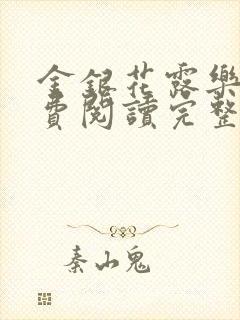 金銀花露樂
費閱讀完整
秦山鬼